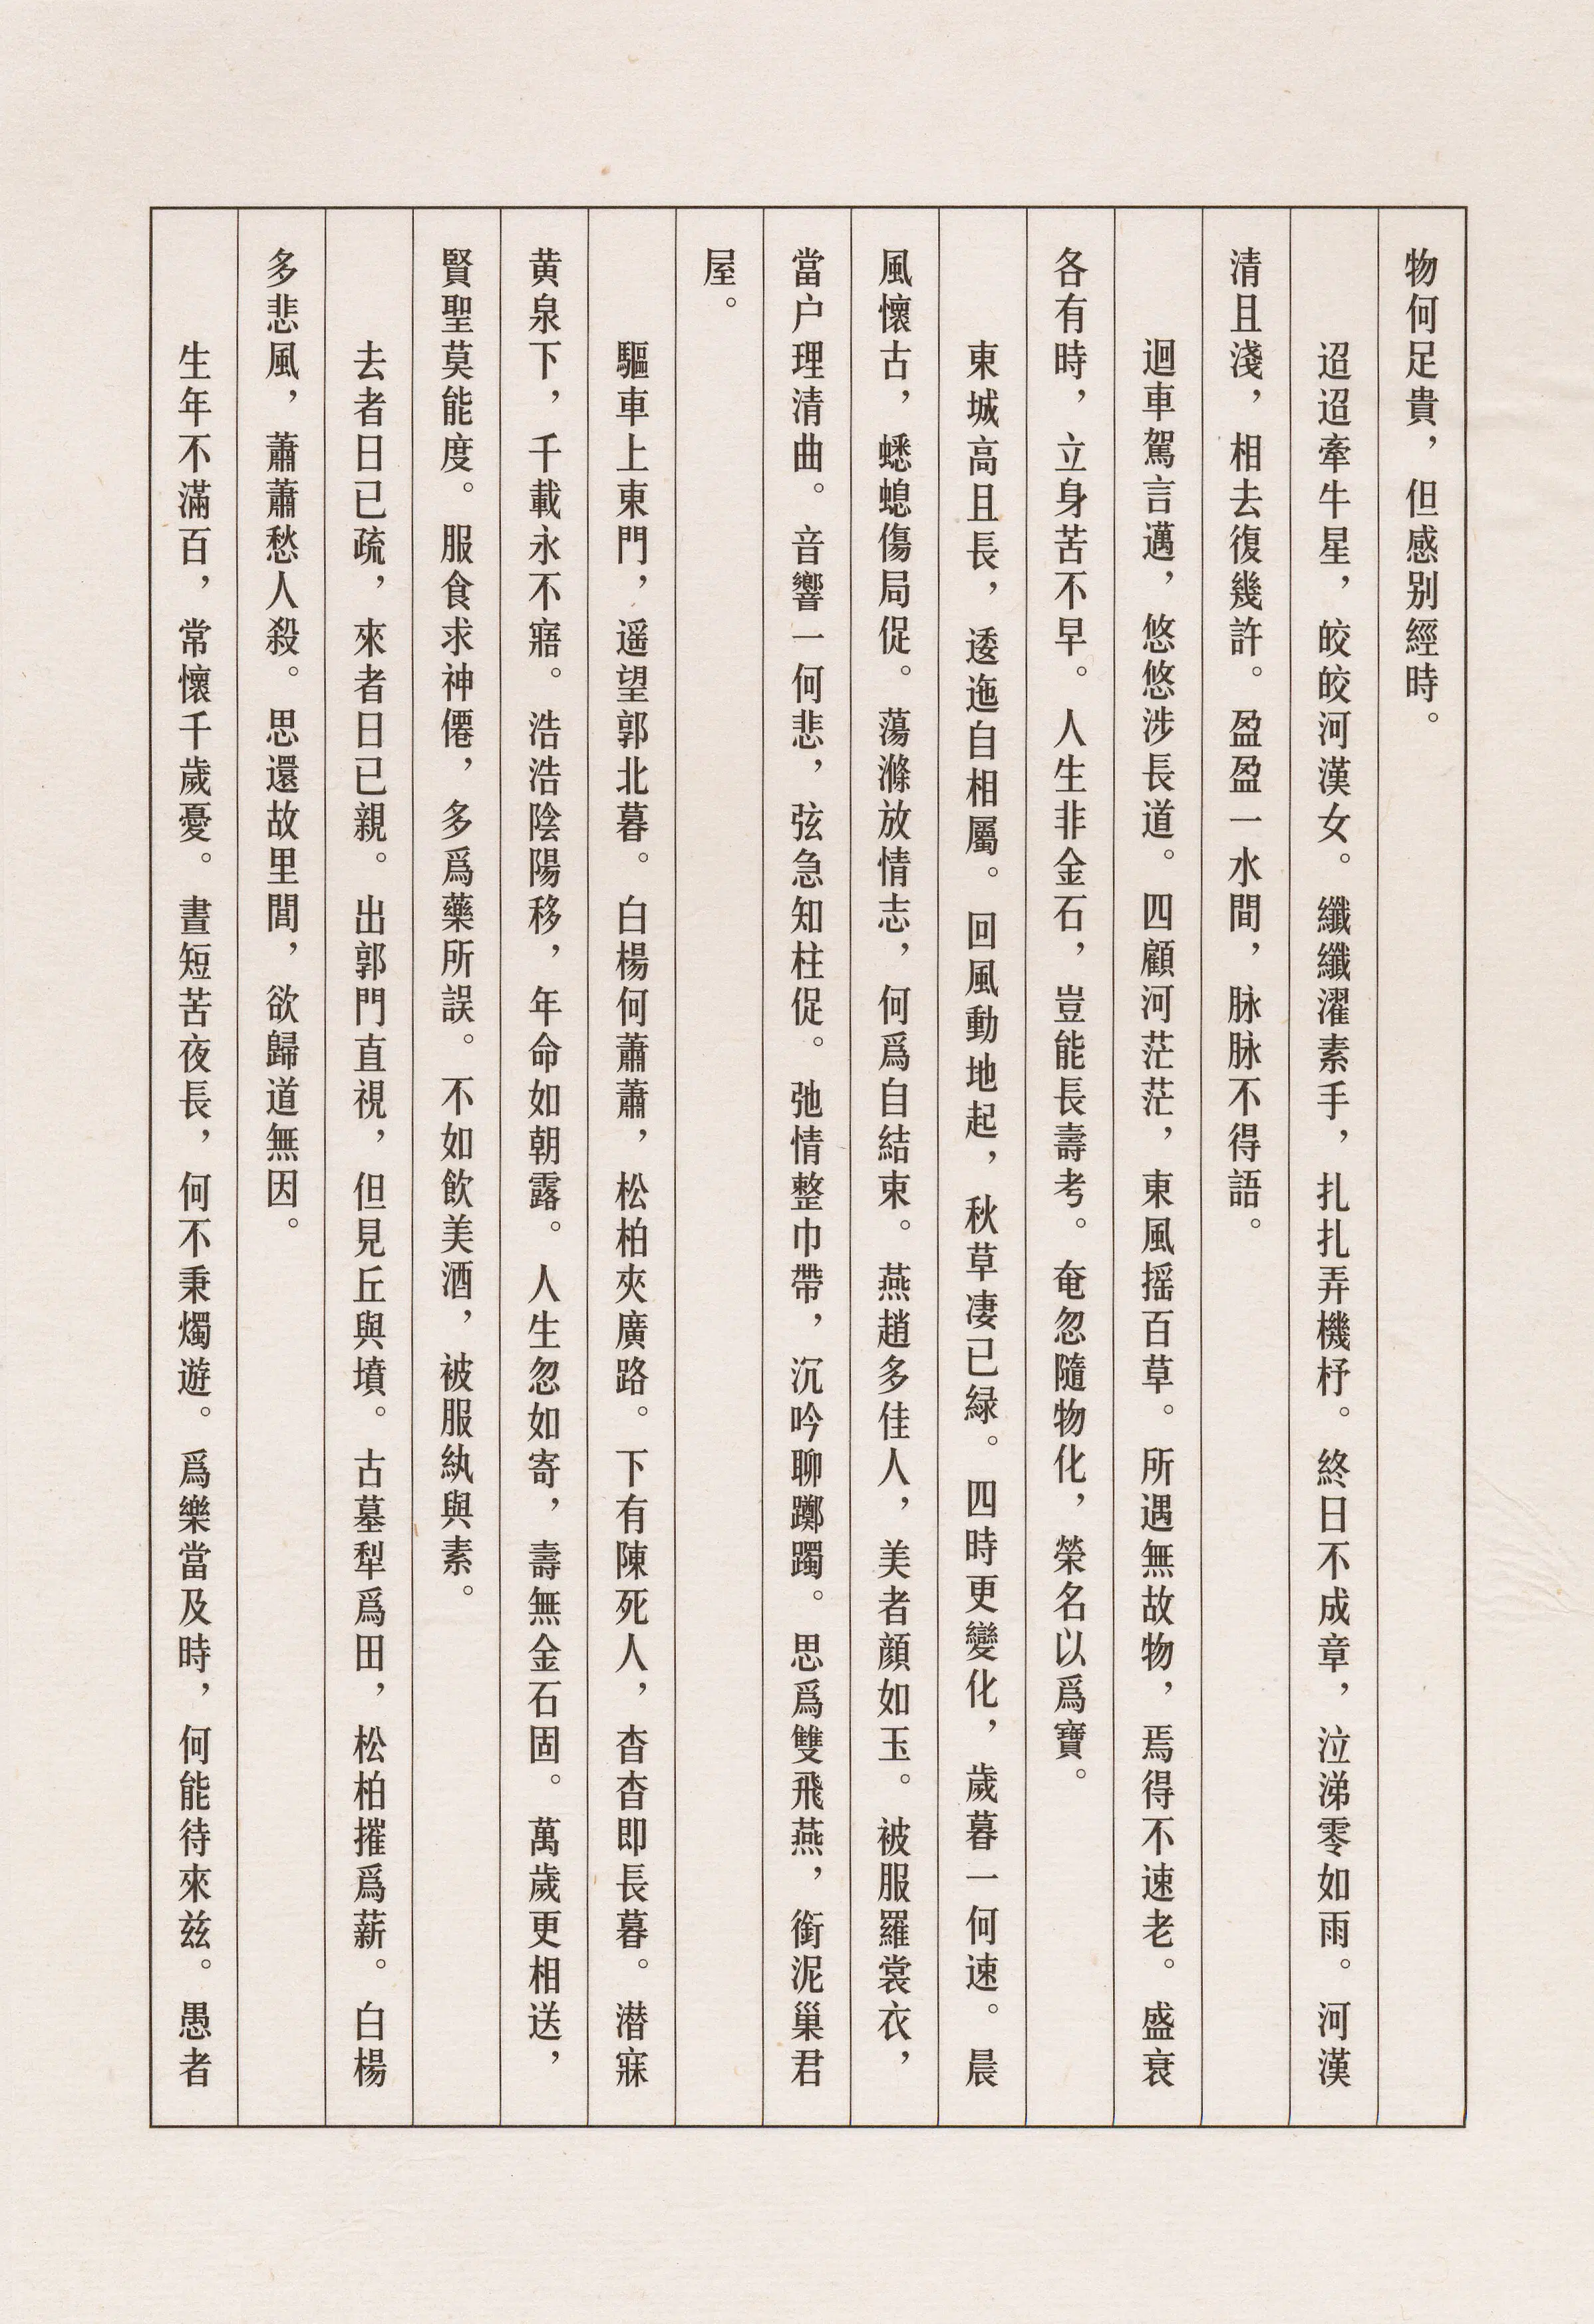 物何足貴，但感别經時。
迢迢牽牛星，皎皎河漢女。纖纖濯素手，扎扎弄機杼。終日不成章，泣涕零如雨。河漢
清且淺，相去復幾許。盈盈一水間，脉脉不得語。
迴車駕言邁，悠悠涉長道。四顧河茫茫，東風摇百草。所遇無故物，焉得不速老。盛衰
各有時，立身苦不早。人生非金石，豈能長壽考。奄忽隨物化，榮名以爲寶。
東城高且長，逶迤自相屬。回風動地起，秋草凄已緑。四時更變化，歲暮一何速。晨
風懷古，蟋螅傷局促。蕩滌放情志，何爲自結束。燕趙多佳人，美者顔如玉。被服羅裳衣，
當户理清曲。音響一何悲，弦急知柱促。弛情整巾帶，沉吟聊躑躅。思爲雙飛燕，銜泥巢君
屋。
驅車上東門，遥望郭北暮。白楊何蕭蕭，松柏夾廣路。下有陳死人，杳杳即長暮。潜寐
黄泉下，千載永不寤。浩浩陰陽移，年命如朝露。人生忽如寄，壽無金石固。萬歲更相送，
賢聖莫能度。服食求神僊，多爲藥所誤。不如飲美酒，被服紈與素。
去者日已疏，來者日已親。出郭門直視，但見丘與墳。古墓犁爲田，松柏摧爲薪。白楊
多悲風，蕭蕭愁人殺。思還故里閭，欲歸道無因。
生年不滿百，常懷千歲憂。晝短苦夜長，何不秉燭遊。爲樂當及時，何能待來兹。愚者